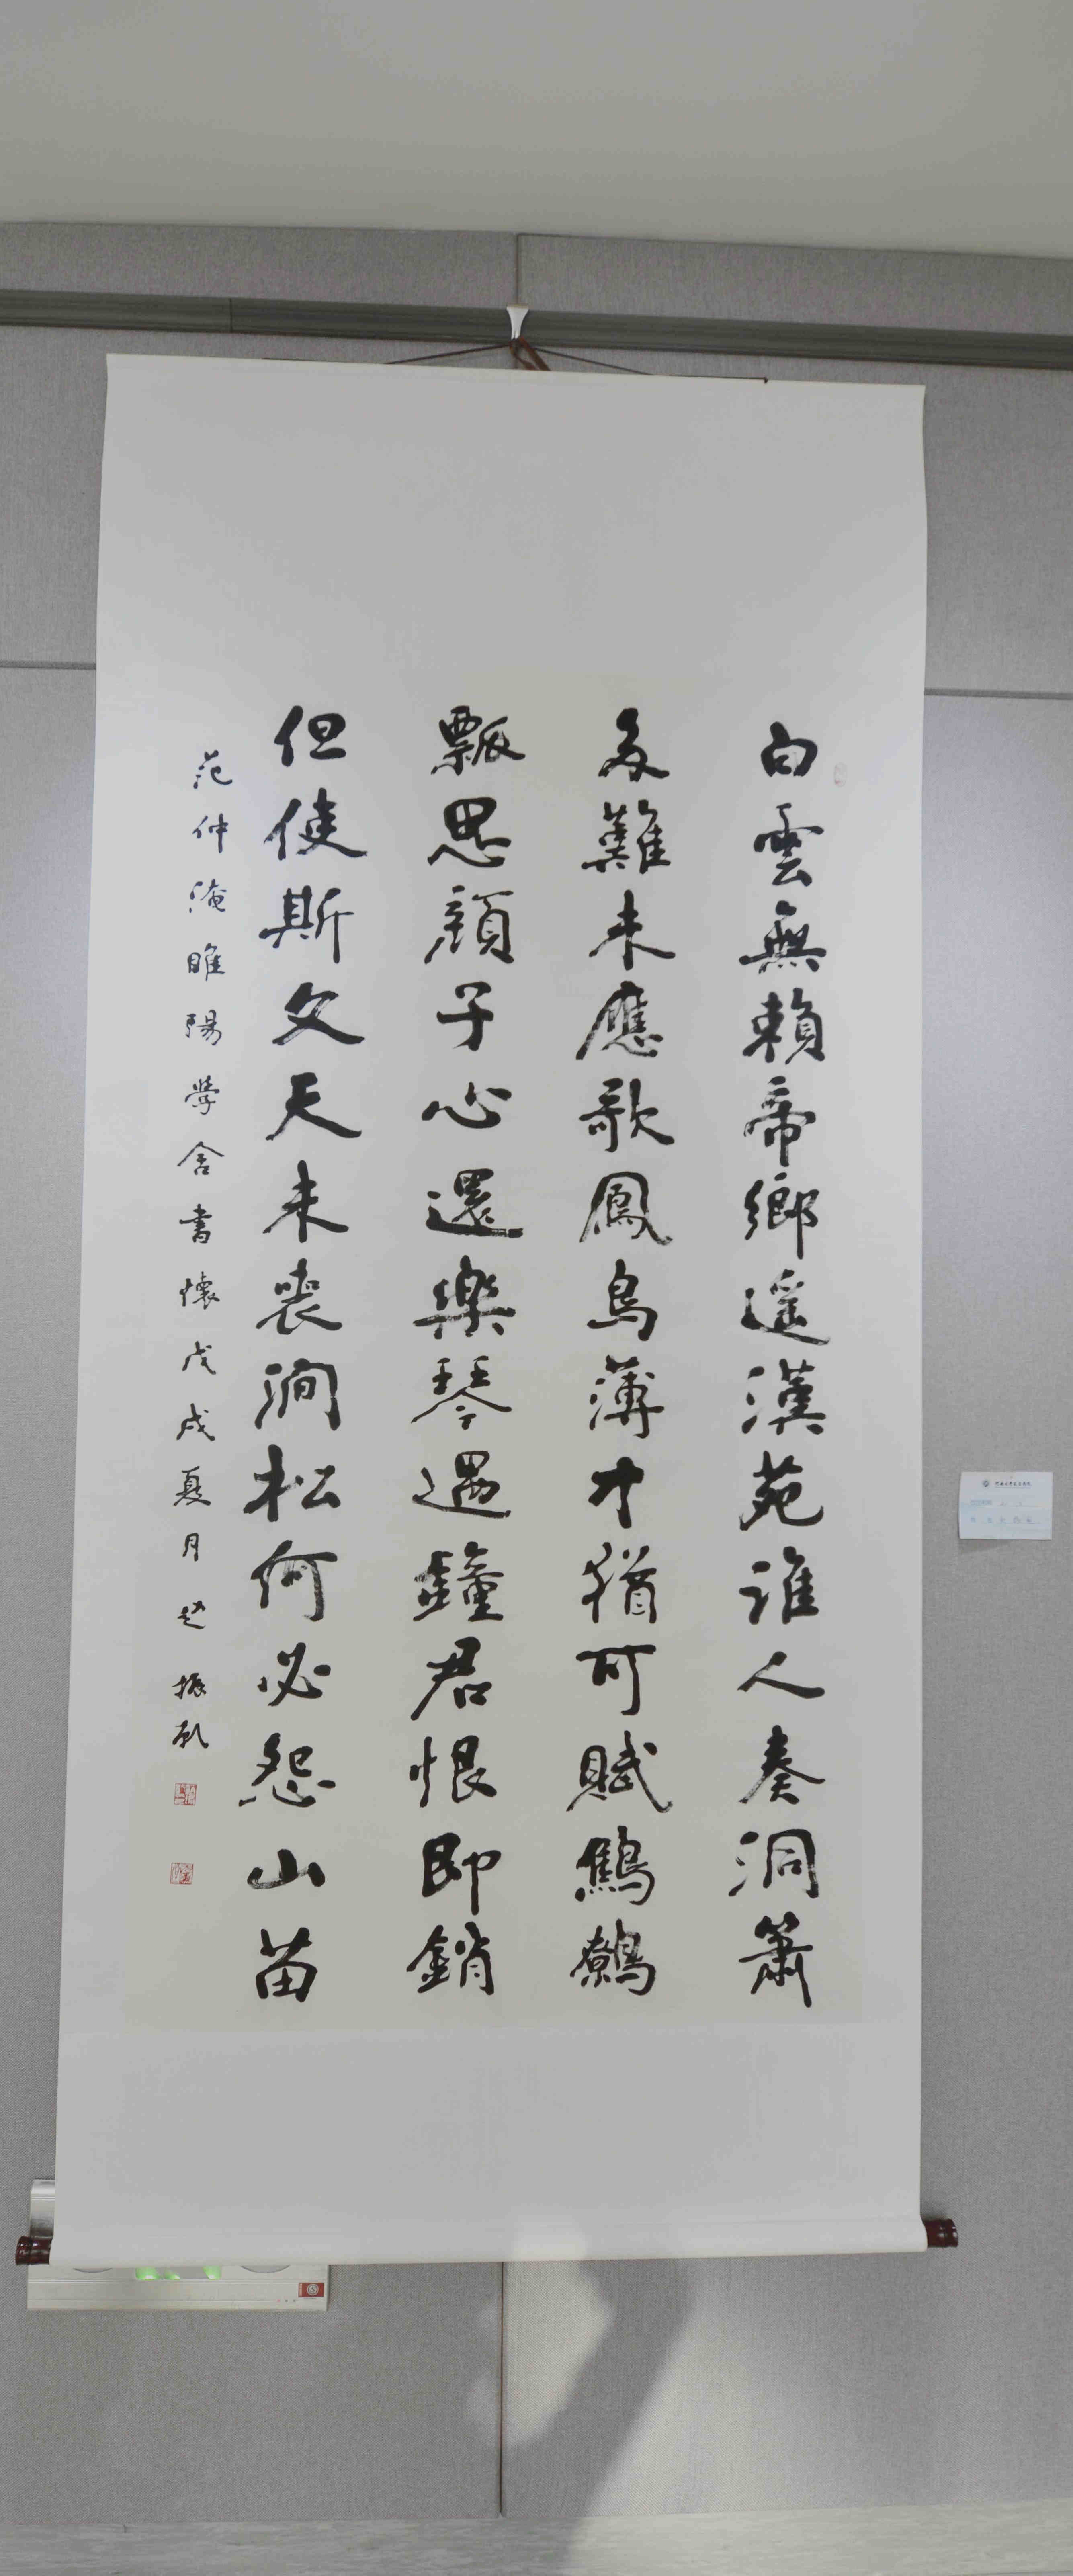 白雲無賴帝鄉遥漢苑誰人奏洞簫
多難未應歌鳳鳥薄才猶可賦鷦鷯
瓢思顔子心還樂琴遇鐘君恨即銷
但使斯文天未喪澗松何必怨山苗
范仲淹睢陽學舍書懷戊戌夏月趙振乾